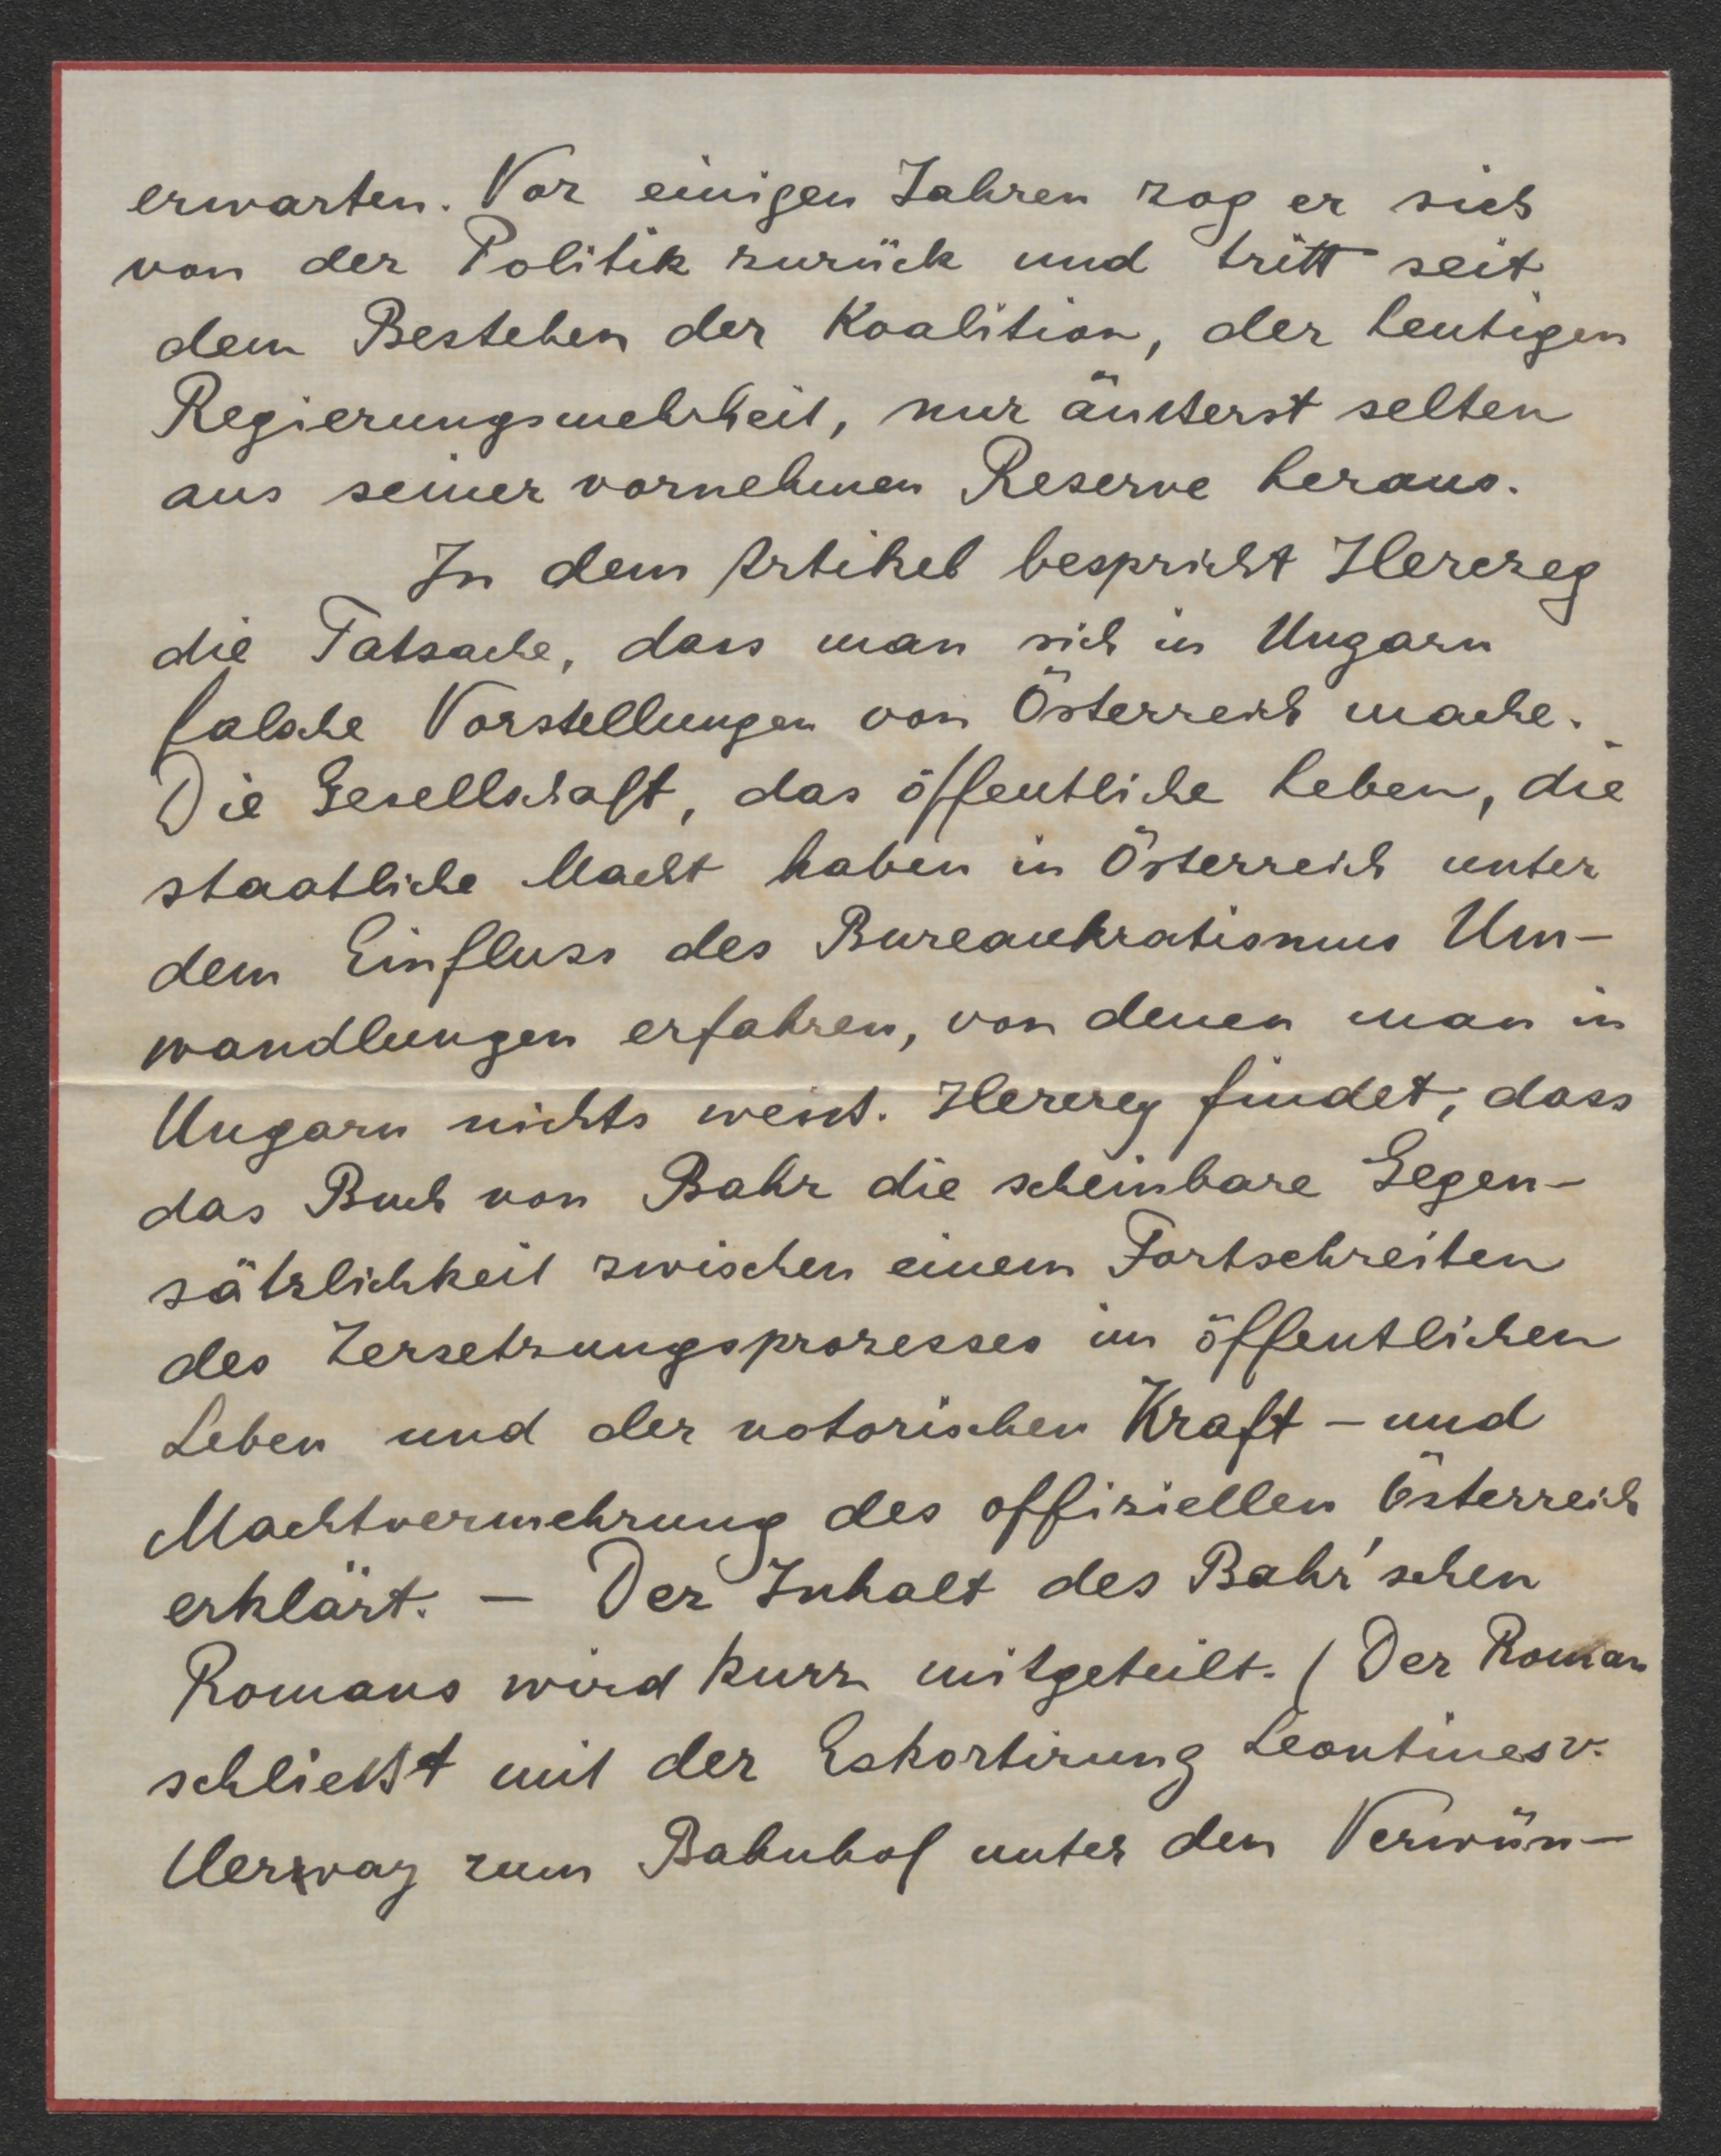 erwarten. Vor einigen Jahren zog er sich
von der Politik zurück und tritt seit
dem Bestehen der Koalition, der heutigen
Regierungsmehrheit, nur äußerst selten
aus seiner vornehmen Reserve heraus.
In dem Artikel bespricht Herczeg
die Tatsache, dass man sich in Ungarn
falsche Vorstellungen von Österreich mache.
Die Gesellschaft, das öffentliche Leben, die
staatliche Macht haben in Österreich unter
dem Einfluss des Bureaukratismus Um-
wandlungen erfahren, von denen man in
Ungarn nichts weiss. Herczeg findet, dass
das Buch von Bahr die scheinbare Gegen-
sätzlichkeit zwischen einem Fortschreiten
des Zersetzungsprozesses im öffentlichen
Leben und der notorischen Kraft - und
Machtvermehrung des offiziellen Österreich
erklärt. — Der Inhalt des Bahr'schen
Romans wird kurz mitgeteilt. (Der Roman
schließt mit der Eskortirung Leontines v.
zum Bahnhof unter den Verwün-